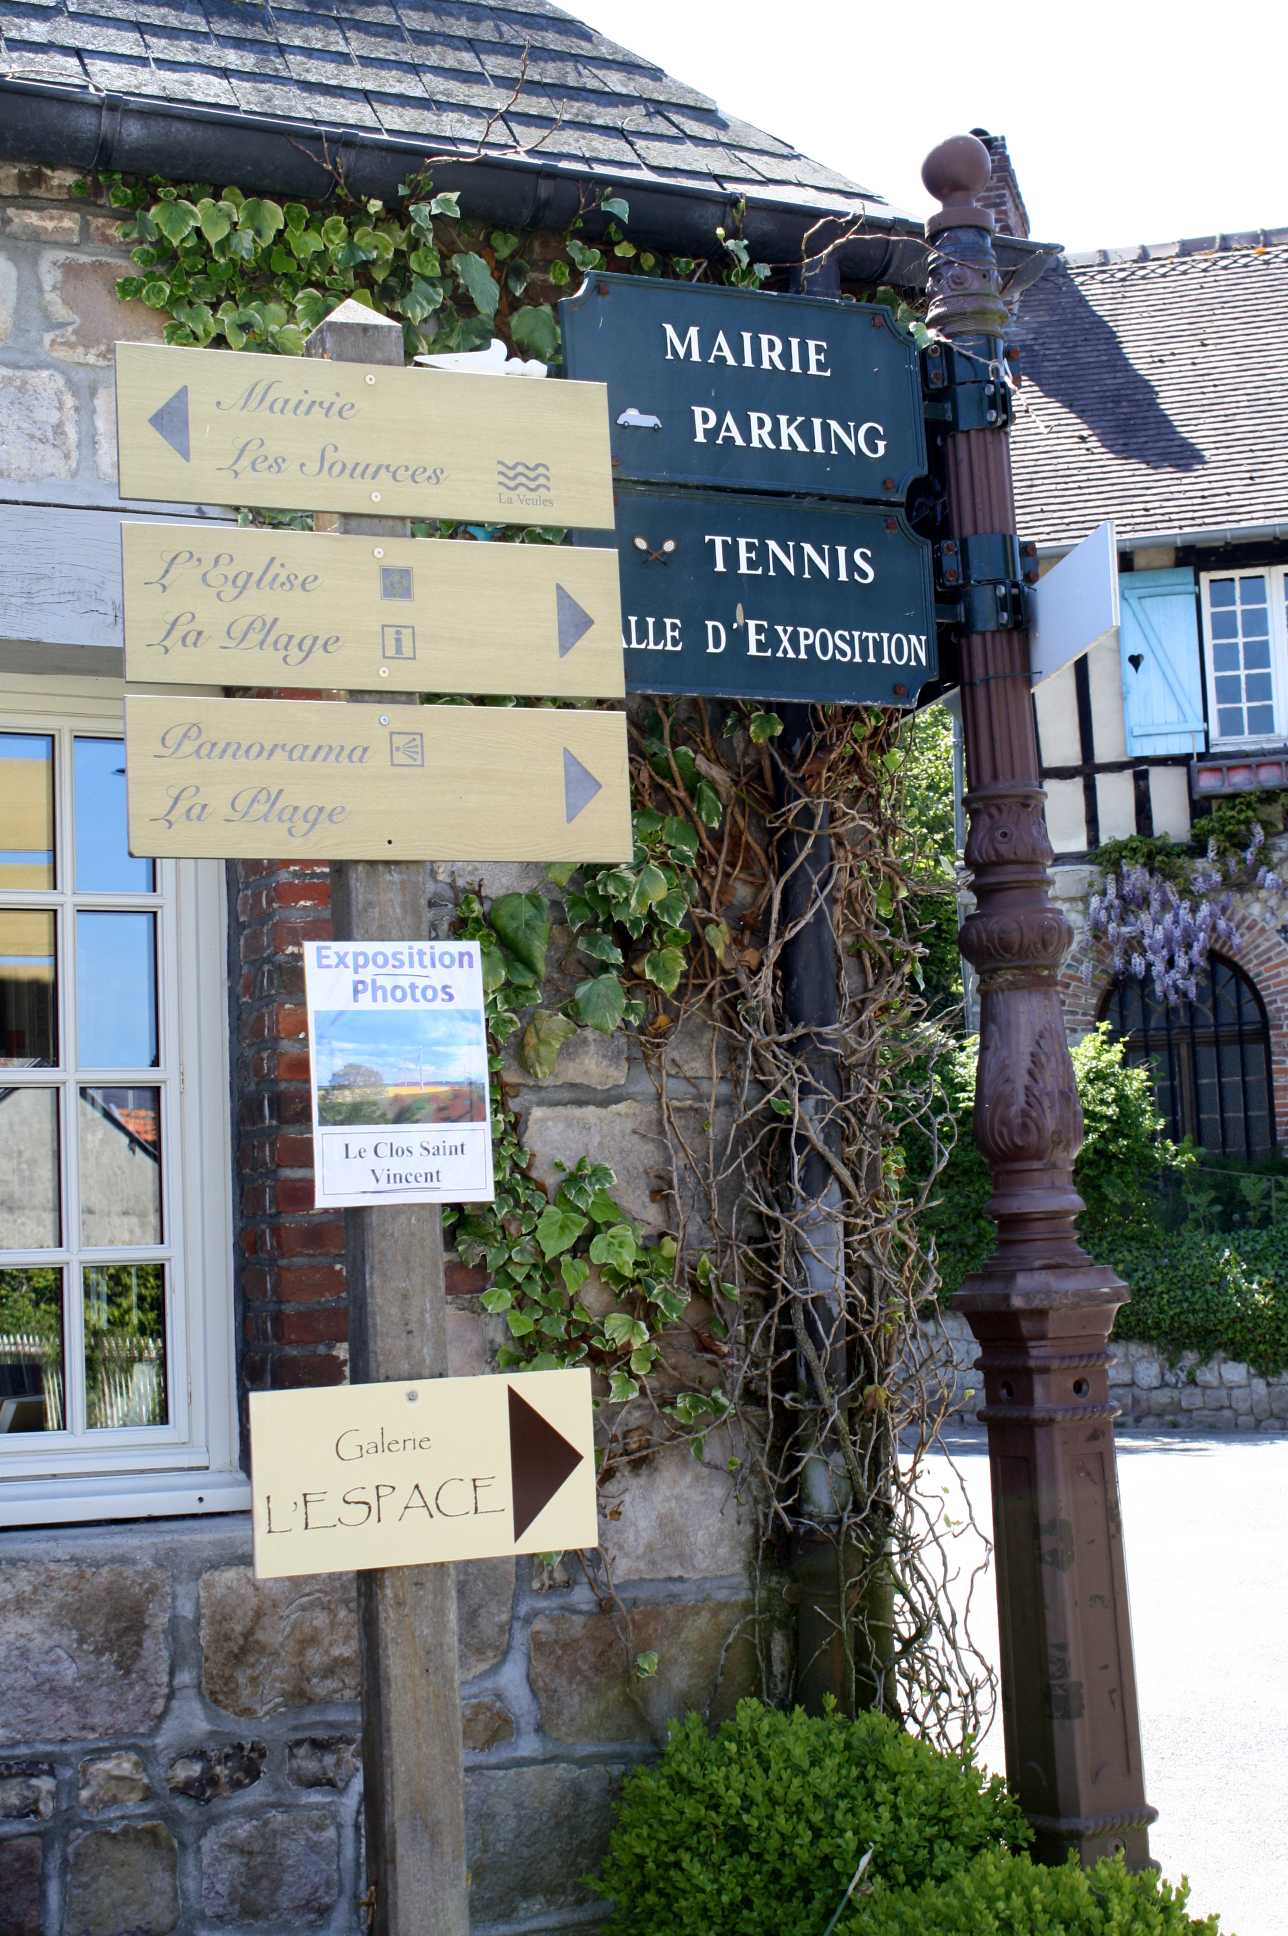 Mairie
Les Sources
La Veules
L'Eglise
La Plage
i
Panorama
La Plage
MAIRIE
PARKING
TENNIS
D'EXPOSITION
Exposition
Photos
Le Clos Saint
Vincent
Galerie
L'ESPACE